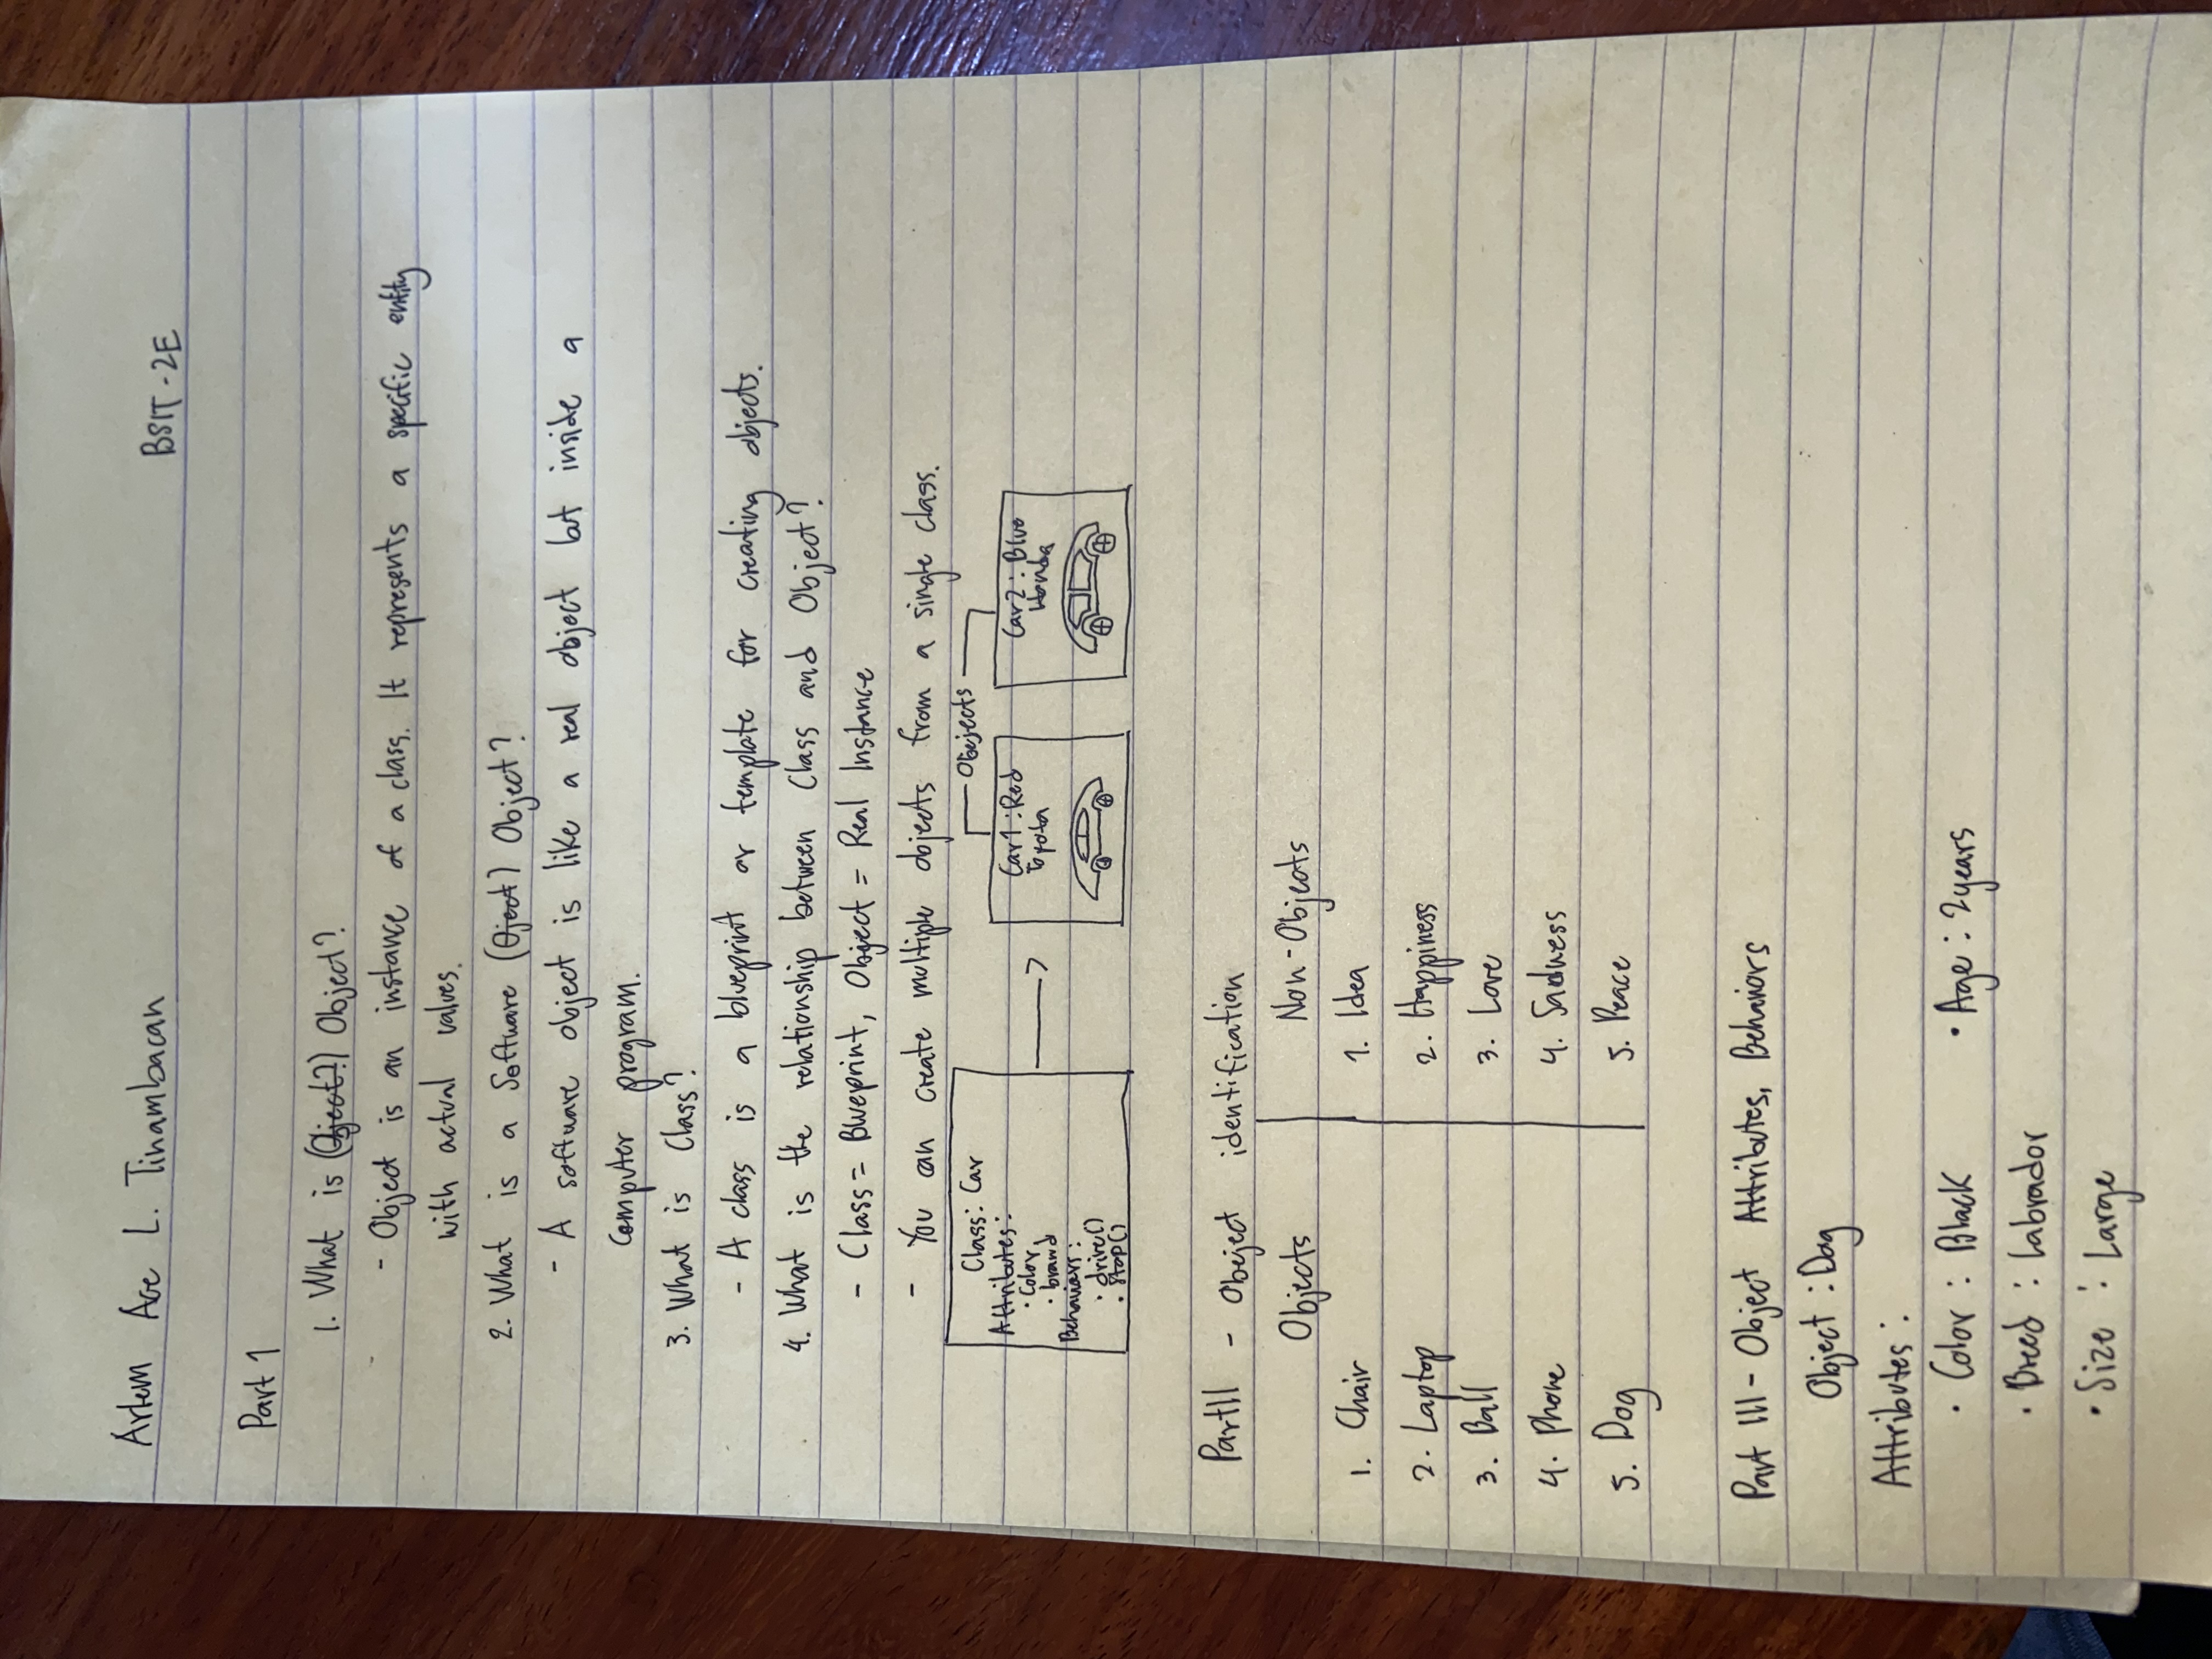 Artem Ace L. Tinambacan BSIT-2E
Part 1
1. What is (Oject?) Object?
- Object is an instance of a class. It represents a specific entity
with actual values.
2. What is a Software (Oject) Object?
- A software object is like a real object but inside a
computer program.
3. What is Class?
- A class is a blueprint or template for creating objects.
4. What is the relationship between Class and Object?
- Class = Blueprint, Object = Real Instance
- You can create multiple objects from a single class.
Class: Car
Attributes:
• Color
• brand
Behaviors:
• drive()
• stop()
Obejects
Car1 : Red
Toyota
Car2 : Blue
Honda
Part II - Obeject identification
Objects Non-Objects
1. Chair 1. Idea
2. Laptop 2. Happiness
3. Ball 3. Love
4. Phone 4. Sadness
5. Dog 5. Peace
Part III - Object Attributes, Behaviors
Object : Dog
Attributes :
• Color : Black • Age : 2 years
• Breed : Labrador
• Size : Large